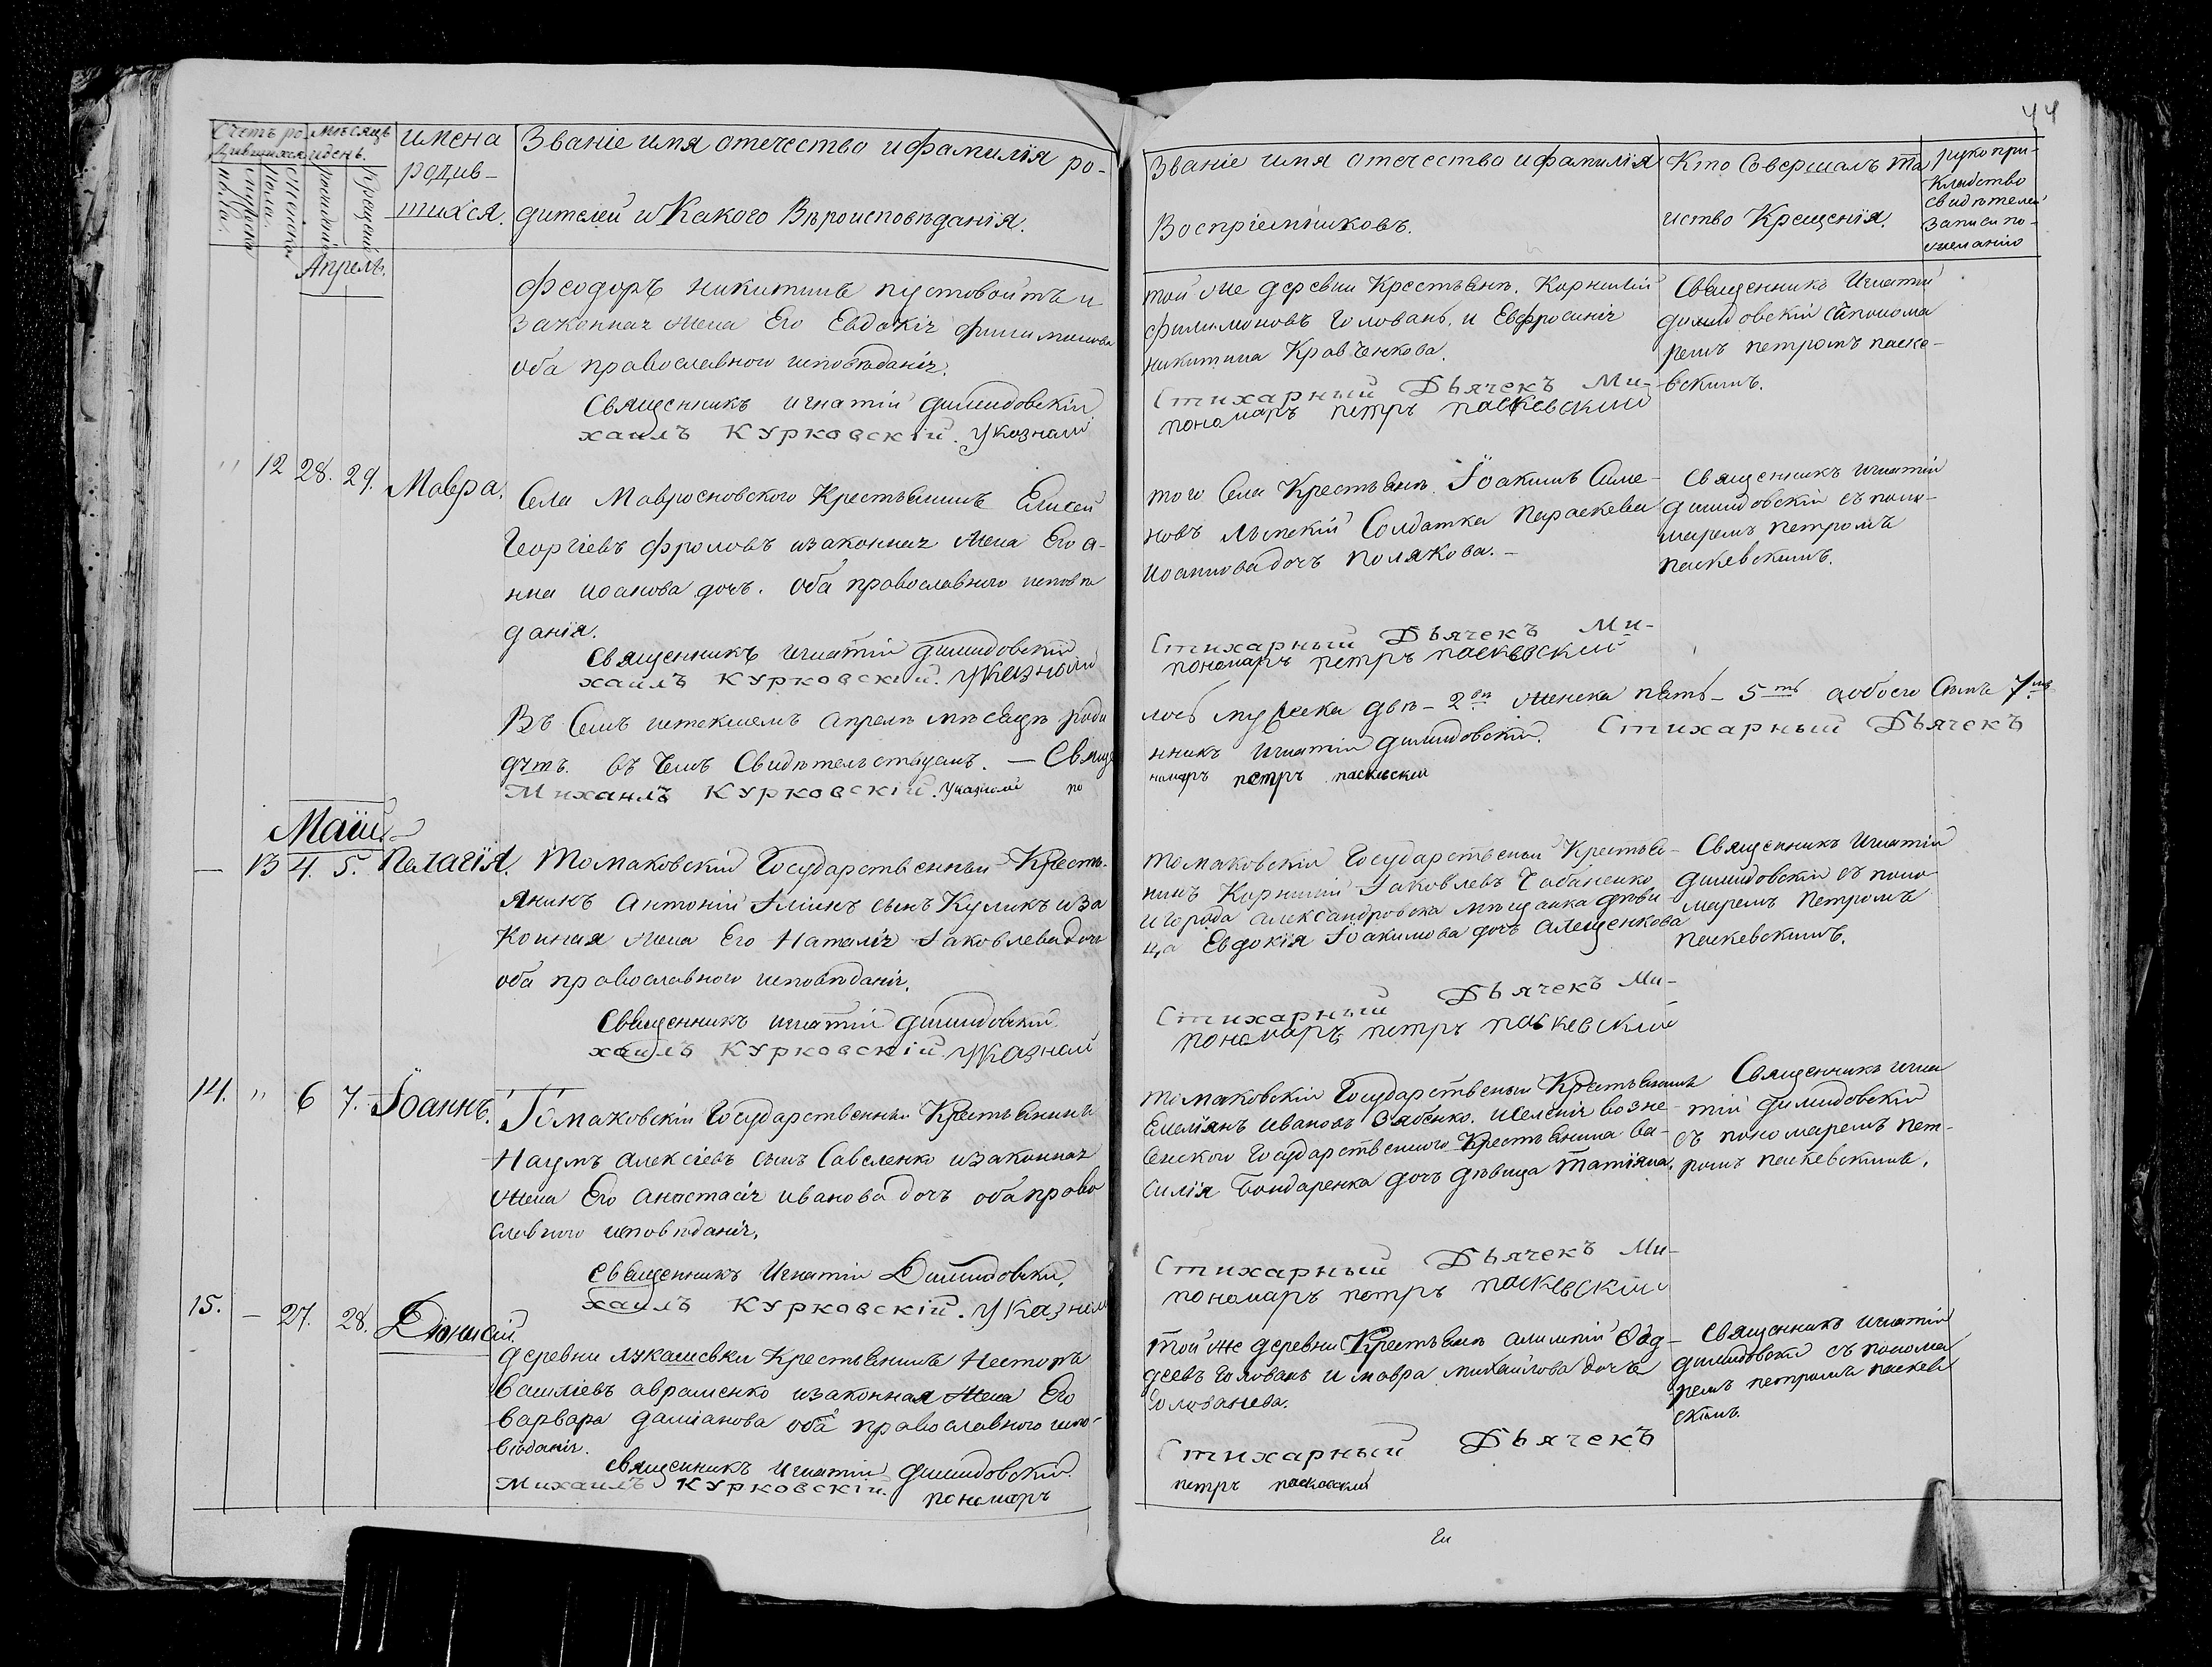 44
Счетъ ро
дившихся
мужеска
пола.
женска
пола.
мѣсяцъ
и день.
рожденія
крещенія
имена
родив-
шихся.
Званіе имя отечество и фамилія ро-
дителей и Какого Вѣроисповѣданія.
Званіе имя отечество и фамилія
Воспріемниковъ.
Кто Совершалъ та
инство Крещенія.
рукопри-
кладство
свидѣтелей
записи по-
желанію
Апрель.
Феодоръ Никитинъ пустовойтъ и
Законная жена Его Евдокія филимонова
оба православного исповѣданія.
Священникъ игнатій Димидовскій
хаилъ Курковскій. указной
той же деревни Крестьяне. Корнилій
филимоновъ Головань. и Евфросинія
никитина Кравченкова.
Стихарный Дьячекъ Ми-
пономарь петръ паскевский
Священникъ Игнатій
Димидовскій съ понома
ремъ петромъ паске-
вскимъ.
" 12 28. 29. Мавра.
Села Мавросновского Крестьянинъ Елисей
Георгіевъ Фроловъ и законная жена Его а-
нна иоанова дочь. Оба православного исповѣ
данія.
Священникъ игнатій Димидовскій
хаилъ Курковскій. указной
того Села Крестьяне. Іоакимъ Симе-
новъ Лѣпскій Солдатка Параскевія
иоаннова дочь Полякова. -
Стихарный Дьячекъ Ми-
пономарь петръ паскевский
Священникъ игнатій
Димидовскій съ поно-
маремъ петромъ
паскевскимъ.
Въ Семъ истекшемъ апреле мѣсяцѣ роди
лось мужеска двѣ - 2ве женска пять - 5ть а обоего Семь 7мь
дуть. въ Чемъ Свидѣтельствуемъ. - Свяще
нникъ Игнатій Димидовскій. Стихарный Дьячекъ
Михаилъ Курковскій. Указной по
номарь петръ паскевский
Маій.
- 13 4. 5. Пелагія.
Томаковскій Государственный Кресть-
янинъ Антоній Іліинъ сынъ Куликъ и за
конная жена Его Наталія Іаковлева дочь
оба православного исповѣданія.
Священникъ игнатій Димидовскій
хаилъ Курковскій. указной
томаковскій Государственый Крестья-
нинъ Корнилій Іаковлевъ Чабаненко
и города александровска мѣщанка дѣви-
ца Евдокія Іоакимова дочь алещенкова
Стихарный Дьячекъ Ми-
пономарь петръ паскевский
Священникъ Игнатій
Димидовскій съ поно
маремъ Петромъ
паскевскимъ.
14. " 6 7. Іоаннъ.
Томаковскій Государственный Крестьянинъ
Наумъ алексіевъ сынъ Савеленко и законная
жена Его анастасія иванова дочь оба право
славного исповѣданія.
Священникъ Игнатій Димидовскій.
хаилъ Курковскій. Указной
томаковскій Государственый Крестьянинъ
Емеліянъ Ивановъ Зябенко. и Селенія возне-
сенского Государственного Крестьянина ва-
силія Бондаренка дочь дѣвица Татіяна.
Стихарный Дьячекъ Ми-
пономарь петръ паскевский
Священникъ игна
тій Димидовскій
съ пономаремъ пет-
ромъ паскевскимъ.
15. - 27. 28. Діонисій.
деревни лукашевки Крестьянинъ Несторъ
Василіевъ авраменко и законная жена Его
варвара даміанова оба православного испо-
вѣданія.
священникъ Игнатій Димидовскій.
Михаилъ Курковскій. пономарь
той же деревни Крестьяне алимпій Фад-
деевъ Головань и мавра михайлова дочь
Голованева.
Стихарный Дьячекъ
петръ паскевский
Священникъ игнатій
Димидовскій съ понома
ремъ петромъ паскев
скимъ.